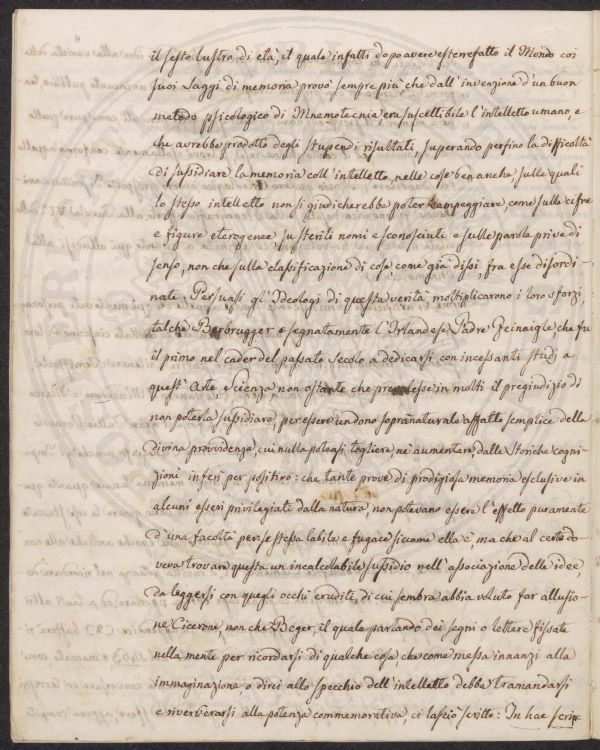 il sesto lustro di età, il quale infatti dopo avere esterrefatto il Mondo coi
suoi saggi di memoria provò sempre più, che dall' invenzione d'un buon
metodo psicologico di Mnemotecnia, era suscettibile l'intelletto umano, e
che avrebbe prodotto degli stupendi risultati, superando perfino la difficoltà
di sussidiare la memoria coll' intelletto, nelle cose ben anche, sulle quali
lo stesso intelletto non si giudicherebbe poter campeggiare, come sulle cifre
e figure eterogenee, su sterili nomi e sconosciuti e sulle parole prive di
senso, non che sulla classificazione di cose, come già dissi, fra esse disordi-
nate. Persuasi gl' Ideologi di questa verità moltiplicarono i loro sforzi
talchè e segnatamente l'Irlandese Padre Feinaigle che fu
il primo nel cader del passato Secolo a dedicarsi con incessanti studj a
quest' Arte, e Scienza, non ostante che prevalesse in molti il pregiudizio di
non poterla sussidiare, per essere un dono sopranaturale affatto semplice della
divina provvidenza, cui nulla poteasi togliere, nè aumentare, dalle Storiche cogni-
zioni inferì per positivo: che tante prove di prodigiosa memoria esclusive in
alcuni esseri privilegiati dalla natura, non potevano essere l'effetto puramente
d'una facoltà per se stessa labile e fugace siccome ella è, ma che al certo do-
veva trovare questa un incalcolabile sussidio nell' associazione delle idee,
da leggersi con quegli occhi eruditi, di cui sembra abbia voluto far allusio-
ne Cicerone, non che Beger, il quale parlando dei segni o lettere fissate
nella mente per ricordarsi di qualche cosa che come messa innanzi alla
immaginazione o direi allo specchio dell' intelletto debba tramandarsi
e riverberarsi alla potenza commemorativa, ci lasciò scritto: In hac scri=